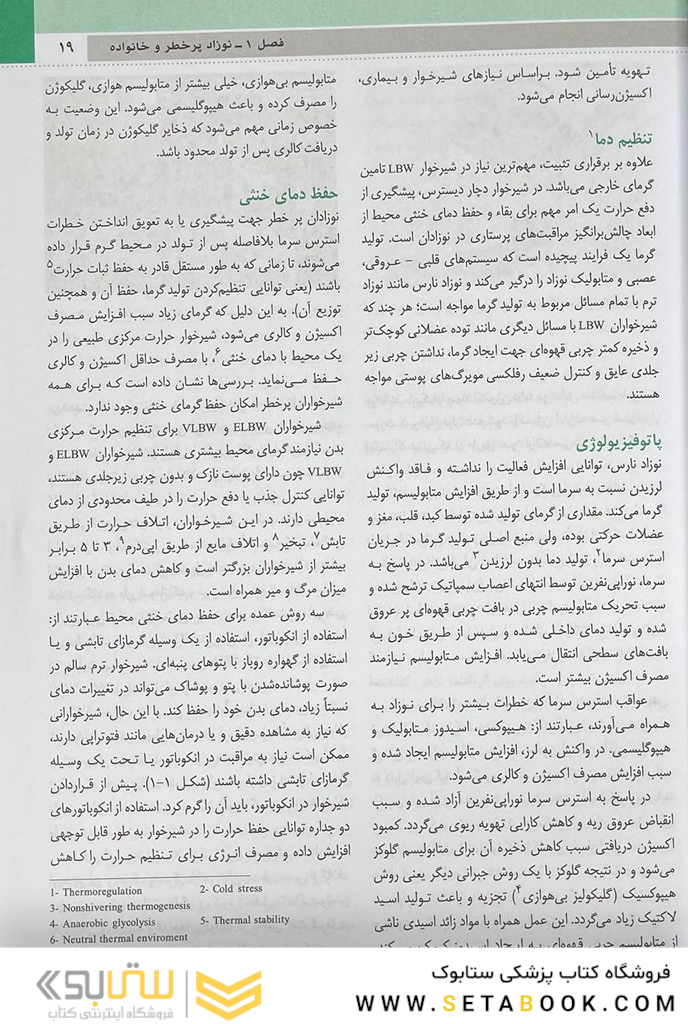 فصل ۱ – نوزاد پرخطر و خانواده
۱۹
تهویه تأمین شود. براساس نیازهای شیرخوار و بیماری،
اکسیژن‌رسانی انجام می‌شود.
تنظیم دما۱
علاوه بر برقراری تثبیت، مهم‌ترین نیاز در شیرخوار LBW تامین
گرمای خارجی می‌باشد. در شیرخوار دچار دیسترس، پیشگیری از
دفع حرارت یک امر مهم برای بقاء و حفظ دمای خنثی محیط از
ابعاد چالش‌برانگیز مراقبت‌های پرستاری در نوزادان است. تولید
گرما یک فرایند پیچیده است که سیستم‌های قلبی – عروقی،
عصبی و متابولیک نوزاد را درگیر می‌کند و نوزاد نارس مانند نوزاد
ترم با تمام مسائل مربوط به تولید گرما مواجه است؛ هر چند که
شیرخواران LBW با مسائل دیگری مانند توده عضلانی کوچک‌تر
و ذخیره کمتر چربی قهوه‌ای جهت ایجاد گرما، نداشتن چربی زیر
جلدی عایق و کنترل ضعیف رفلکسی مویرگ‌های پوستی مواجه
هستند.
پاتوفیزیولوژی
نوزاد نارس، توانایی افزایش فعالیت را نداشته و فاقد واکنش
لرزیدن نسبت به سرما است و از طریق افزایش متابولیسم، تولید
گرما می‌کند. مقداری از گرمای تولید شده توسط کبد، قلب، مغز و
عضلات حرکتی بوده، ولی منبع اصلی تولید گرما در جریان
استرس سرما۲، تولید دما بدون لرزیدن۳ می‌باشد. در پاسخ به
سرما، نوراپی‌نفرین توسط انتهای اعصاب سمپاتیک ترشح شده و
سبب تحریک متابولیسم چربی در بافت چربی قهوه‌ای پر عروق
شده و تولید دمای داخلی شده و سپس از طریق خون به
بافت‌های سطحی انتقال می‌یابد. افزایش متابولیسم نیازمند
مصرف اکسیژن بیشتر است.
عواقب استرس سرما که خطرات بیشتر را برای نوزاد به
همراه می‌آورند، عبارتند از: هیپوکسی، اسیدوز متابولیک و
هیپوگلیسمی. در واکنش به لرز، افزایش متابولیسم ایجاد شده و
سبب افزایش مصرف اکسیژن و کالری می‌شود.
در پاسخ به استرس سرما نوراپی‌نفرین آزاد شده و سبب
انقباض عروق ریه و کاهش کارایی تهویه ریوی می‌گردد. کمبود
اکسیژن دریافتی سبب کاهش ذخیره آن برای متابولیسم گلوکز
می‌شود و در نتیجه گلوکز با یک روش جبرانی دیگر یعنی روش
هیپوکسیک (گلیکولیز بی‌هوازی۴) تجزیه و باعث تولید اسید
لاکتیک زیاد می‌گردد. این عمل همراه با مواد زائد اسیدی ناشی
از متابولیسم چربی قهوه‌ای به ایجاد اسیدوز کمک می‌کند.
متابولیسم بی‌هوازی، خیلی بیشتر از متابولیسم هوازی، گلیکوژن
را مصرف کرده و باعث هیپوگلیسمی می‌شود. این وضعیت به
خصوص زمانی مهم می‌شود که ذخایر گلیکوژن در زمان تولد و
دریافت کالری پس از تولد محدود باشد.
حفظ دمای خنثی
نوزادان پر خطر جهت پیشگیری یا به تعویق انداختن خطرات
استرس سرما بلافاصله پس از تولد در محیط گرم قرار داده
می‌شوند، تا زمانی که به طور مستقل قادر به حفظ ثبات حرارت۵
باشند (یعنی توانایی تنظیم‌کردن تولید گرما، حفظ آن و همچنین
توزیع آن). به این دلیل که گرمای زیاد سبب افزایش مصرف
اکسیژن و کالری می‌شود، شیرخوار حرارت مرکزی طبیعی را در
یک محیط با دمای خنثی۶، با مصرف حداقل اکسیژن و کالری
حفظ می‌نماید. بررسی‌ها نشان داده است که برای همه
شیرخواران پرخطر امکان حفظ گرمای خنثی وجود ندارد.
شیرخواران ELBW و VLBW برای تنظیم حرارت مرکزی
بدن نیازمند گرمای محیط بیشتری هستند. شیرخواران ELBW و
VLBW چون دارای پوست نازک و بدون چربی زیرجلدی هستند،
توانایی کنترل جذب یا دفع حرارت را در طیف محدودی از دمای
محیطی دارند. در این شیرخواران، اتلاف حرارت از طریق
تابش۷، تبخیر۸ و اتلاف مایع از طریق اپی‌درم۹، ۳ تا ۵ برابر
بیشتر از شیرخواران بزرگتر است و کاهش دمای بدن با افزایش
میزان مرگ و میر همراه است.
سه روش عمده برای حفظ دمای خنثی محیط عبارتند از:
استفاده از انکوباتور، استفاده از یک وسیله گرمازای تابشی و یا
استفاده از گهواره روباز با پتوهای پنبه‌ای. شیرخوار ترم سالم در
صورت پوشانده‌شدن با پتو و پوشاک می‌تواند در تغییرات دمای
نسبتاً زیاد، دمای بدن خود را حفظ کند. با این حال، شیرخوارانی
که نیاز به مشاهده دقیق و یا درمان‌هایی مانند فتوتراپی دارند،
ممکن است نیاز به مراقبت در انکوباتور یا تحت یک وسیله
گرمازای تابشی داشته باشند (شکل ۱-۱). پیش از قراردادن
شیرخوار در انکوباتور، باید آن را گرم کرد. استفاده از انکوباتورهای
دو جداره توانایی حفظ حرارت را در شیرخوار به طور قابل توجهی
افزایش داده و مصرف انرژی برای تنظیم حرارت را کاهش
1- Thermoregulation 2- Cold stress
3- Nonshivering thermogenesis
4- Anaerobic glycolysis 5- Thermal stability
6- Neutral thermal enviroment
فروشگاه کتاب پزشکی ستابوک
WWW.SETABOOK.COM
ستابوک
فروشگاه اینترنتی کتاب